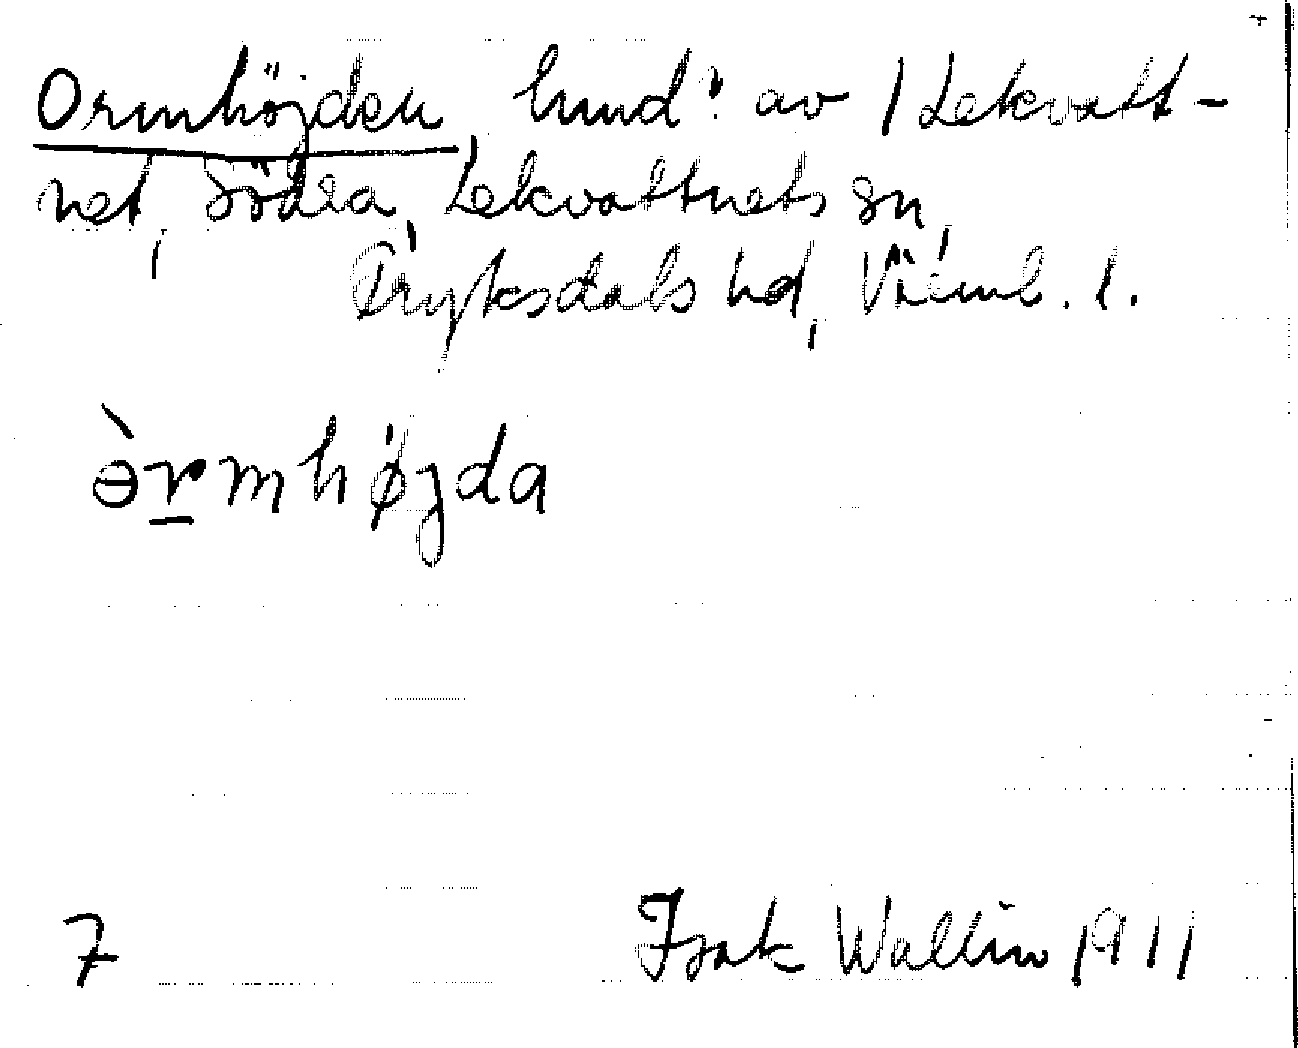 Ormhöjden, hmd av 1 Lekvatt-
net, Södra, Lekvattnets sn,
Fryksdals hd, Värml. l.
ɵ̀r̲mhøjda
7 Isak Wallin 1911